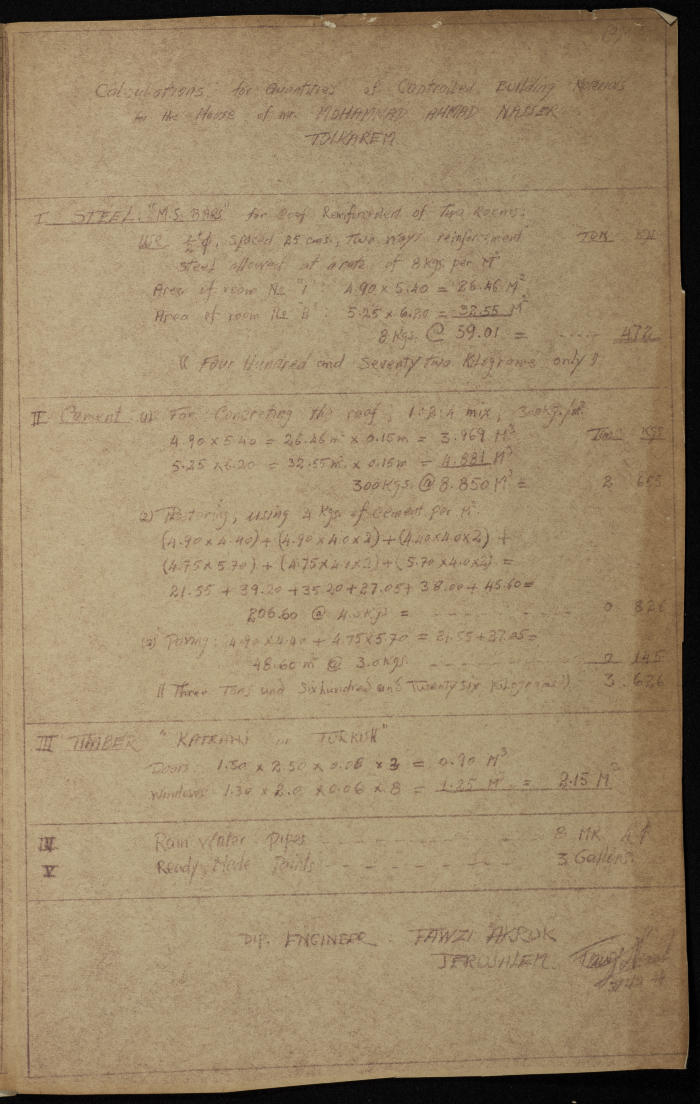 Calculations for Quantities of Controlled Building Materials
for the House of mr. MOHAMMAD AHMAD NASSER
TULKAREM.
I STEEL: "M.S. BARS" for Roof Reinforcement of Two Rooms.
Use ½"φ, spaced 25 cms, Two ways reinforcement Ton KG
Steel allowed at a rate of 8 Kgs per M²
Area of room No "I": 4.90 x 5.40 = 26.46 M²
Area of room No "II": 5.25 x 6.20 = 32.55 M²
8 Kgs. @ 59.01 = 472
(( Four Hundred and Seventy two Kilograms only ))
II Cement (1) For Concreting the roof, 1:2:4 mix, 300kg/m³. Tons KGS
4.90 x 5.40 = 26.46 m² x 0.15m = 3.969 M³
5.25 x 6.20 = 32.55 m² x 0.15m = 4.881 M³
300 Kgs. @ 8.850 M³ = 2 655
(2) Plastering, using 4 Kgs. of Cement per M²
(4.90 x 4.40) + (4.90 x 4.0 x 2) + (4.40 x 4.0 x 2) +
(4.75 x 5.70) + (4.75 x 4.0 x 2) + (5.70 x 4.0 x 2) =
21.55 + 39.20 + 35.20 + 27.05 + 38.00 + 45.60 =
206.60 @ 4.0 Kgs = 0 826
(3) Paving: 4.90 x 4.40 + 4.75 x 5.70 = 21.55 + 27.05 =
48.60 m² @ 3.0 Kgs. 0 145
(( Three Tons and Six hundred and Twenty six Kilograms )) 3. 626
III TIMBER "KATRANI or TURKISH"
Doors: 1.50 x 2.50 x 0.06 x 3 = 0.90 M³
Windows: 1.30 x 2.0 x 0.06 x 8 = 1.25 M³ = 2.15 M³
IV Rain Water Pipes 8 MR 4"φ
V Ready Made Paints 3 Gallons.
DIP. ENGINEER FAWZI AKROK
JERUSALEM.